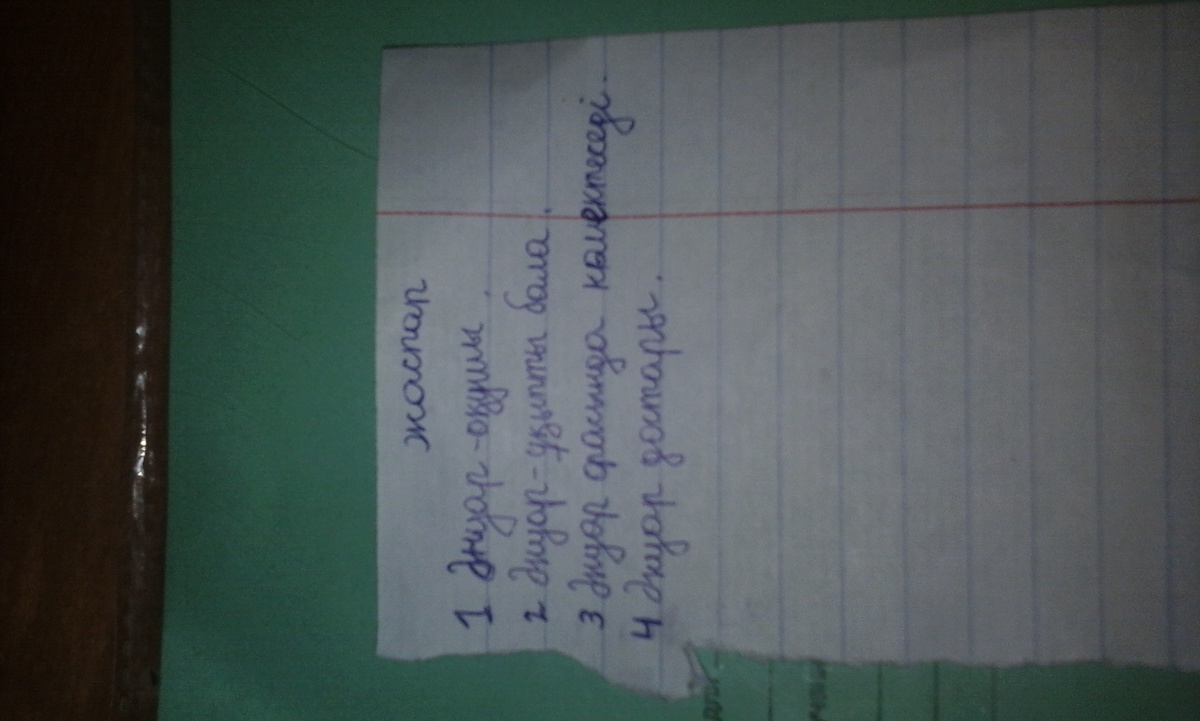 жоспар
1 Әнуар - оқушы.
2 Әнуар - ұқыпты бала.
3 Әнуар ауласында көмектеседі.
4 Әнуар достары.